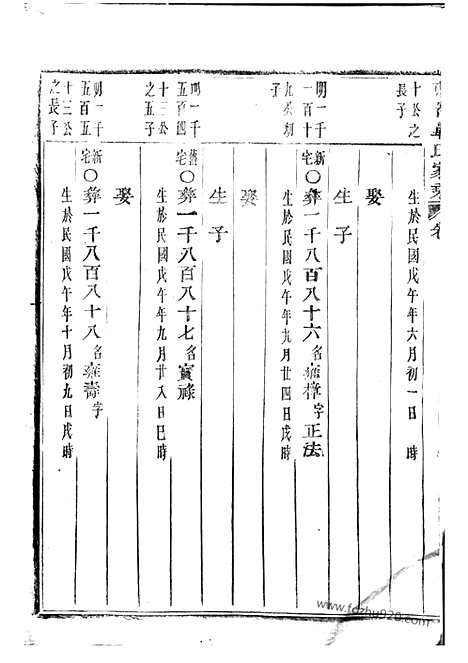 氏家乘
卷
十公之
長子
生於民國戊午年六月初一日 時
娶
生子
明一千
一百十
九公初
子
新宅〇彝一千八百八十六名雍樟字正法
生於民國戊午年九月廿四日戌時
娶
生子
明一千
五百四
十三公
之五子
舊宅〇彝一千八百八十七名寶祿
生於民國戊午年九月廿八日巳時
娶
明一千
五百五
十三公
之長子
新宅〇彝一千八百八十八名雍壽字
生於民國戊午年十月初九日戌時
www.fczhu920.com